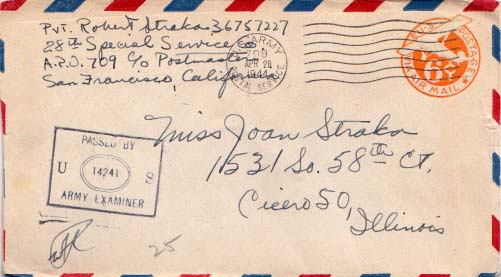 Pvt. Robert Straka 36757227
28th Special Service Co
A.P.O. 709 c/o Postmaster
San Francisco, Calif.
U.S. ARMY
709
APR 28
1944
POSTAL SERVICE
U.S. POSTAGE
6¢
VIA AIR MAIL
Miss Joan Straka
1531 So. 58th Ct.
Cicero 50,
Illinois
PASSED BY
U 14241 S
ARMY EXAMINER
25